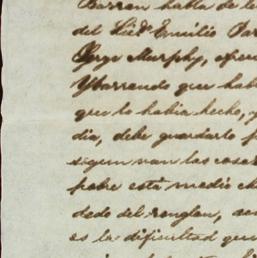 Barron habla de le
del Licdo Emilio Par
Jorge Murphy, ofrec
Ybarrondo que hab
que lo habia hecho, y
dia, debe guardarlo p
segun van las cosas
pobre está medio ch
dedo del renglon, se
es la dificultad que